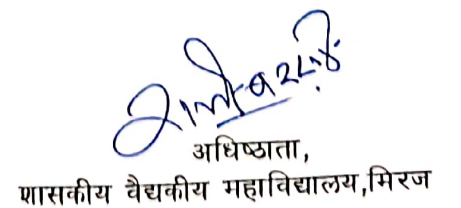 अधिष्ठाता,
शासकीय वैद्यकीय महाविद्यालय,मिरज